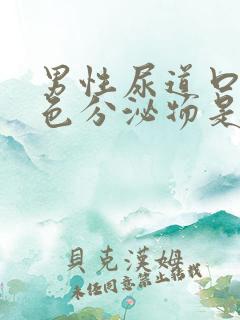 男性尿道口
色分泌物是
貝克漢姆
未经同意禁止转载